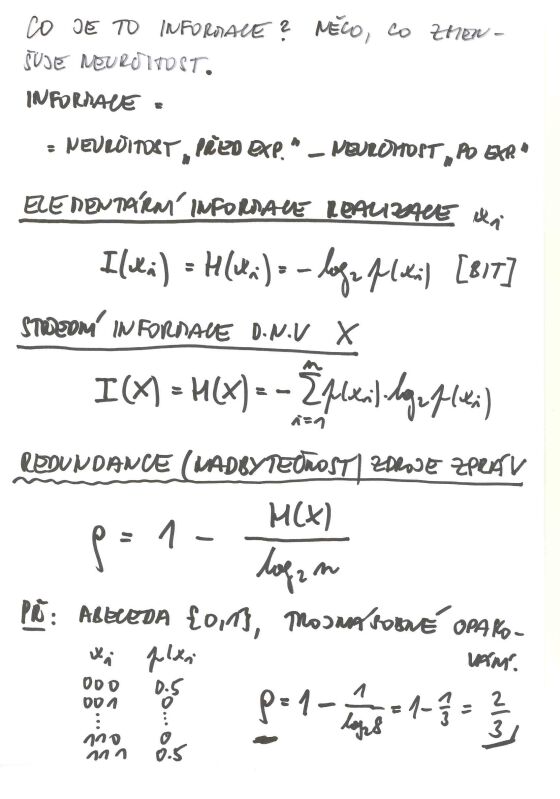 CO JE TO INFORMACE? NĚCO, CO ZMEN-
ŠUJE NEURČITOST.
INFORMACE =
= NEURČITOST „PŘED EXP." – NEURČITOST „PO EXP."
ELEMENTÁRNÍ INFORMACE REALIZACE xi
I(xi) = H(xi) = - log₂ p(xi) [BIT]
STŘEDNÍ INFORMACE D.N.V X
I(X) = H(X) = - Σ_{i=1}^{n} p(xi)·log₂ p(xi)
REDUNDANCE (NADBYTEČNOST) ZDROJE ZPRÁV
ρ = 1 - H(X) / log₂ n
PŘ: ABECEDA {0,1}, TROJNÁSOBNÉ OPAKO-
VÁNÍ.
xi p(xi
000 0.5
001 0
⋮ ⋮
110 0
111 0.5
ρ = 1 - 1/log₂8 = 1 - 1/3 = 2/3